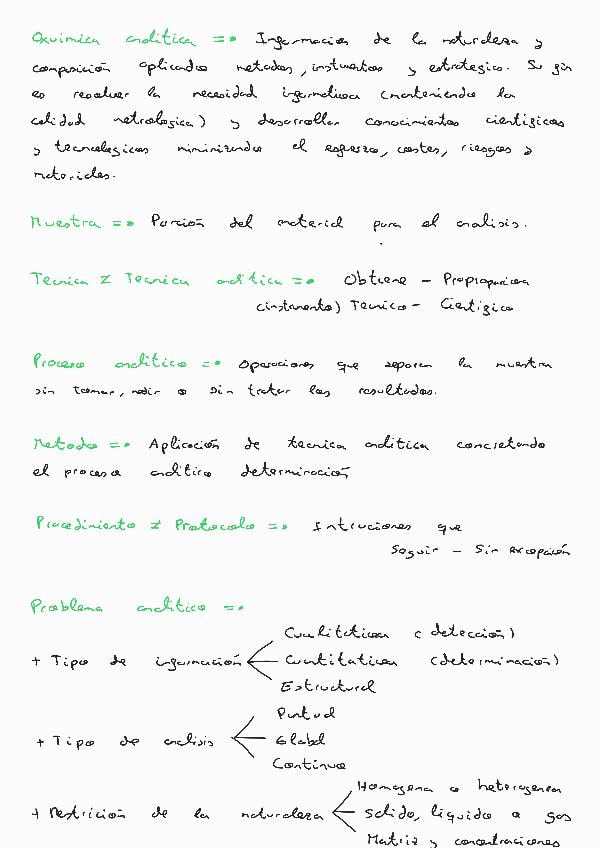 Química analitica => Informacion de la naturaleza y
composición aplicando metodos, instrumentos y estrategica. Su fin
es resolver la necesidad informativa (manteniendo la
calidad metrologica) y desarrollar conocimientos cientificos
y tecnologicos minimizando el esfuerzo, costes, riesgos y
materiales.
Muestra => Porción del material para el analisis.
Tecnica ≠ Tecnica analitica => Obtiene - Proporciona
(instrumento) Tecnico - Cientifico
Proceso analitico => Operaciones que separan la muestra
sin tomar, medir o sin tratar los resultados.
Metodo => Aplicación de tecnica analitica concretando
el proceso analitico determinación
Procedimiento ≠ Protocolo => Intruciones que
seguir - Sin excepción
Problema analitico =>
+ Tipo de información
Cualitativa (detección)
Cuantitativa (determinación)
Estructural
+ Tipo de analisis
Puntual
Global
Continuo
+ Restrición de la naturaleza
Homogenea o heterogenea
solido, liquido o gas
Matriz y concentraciones